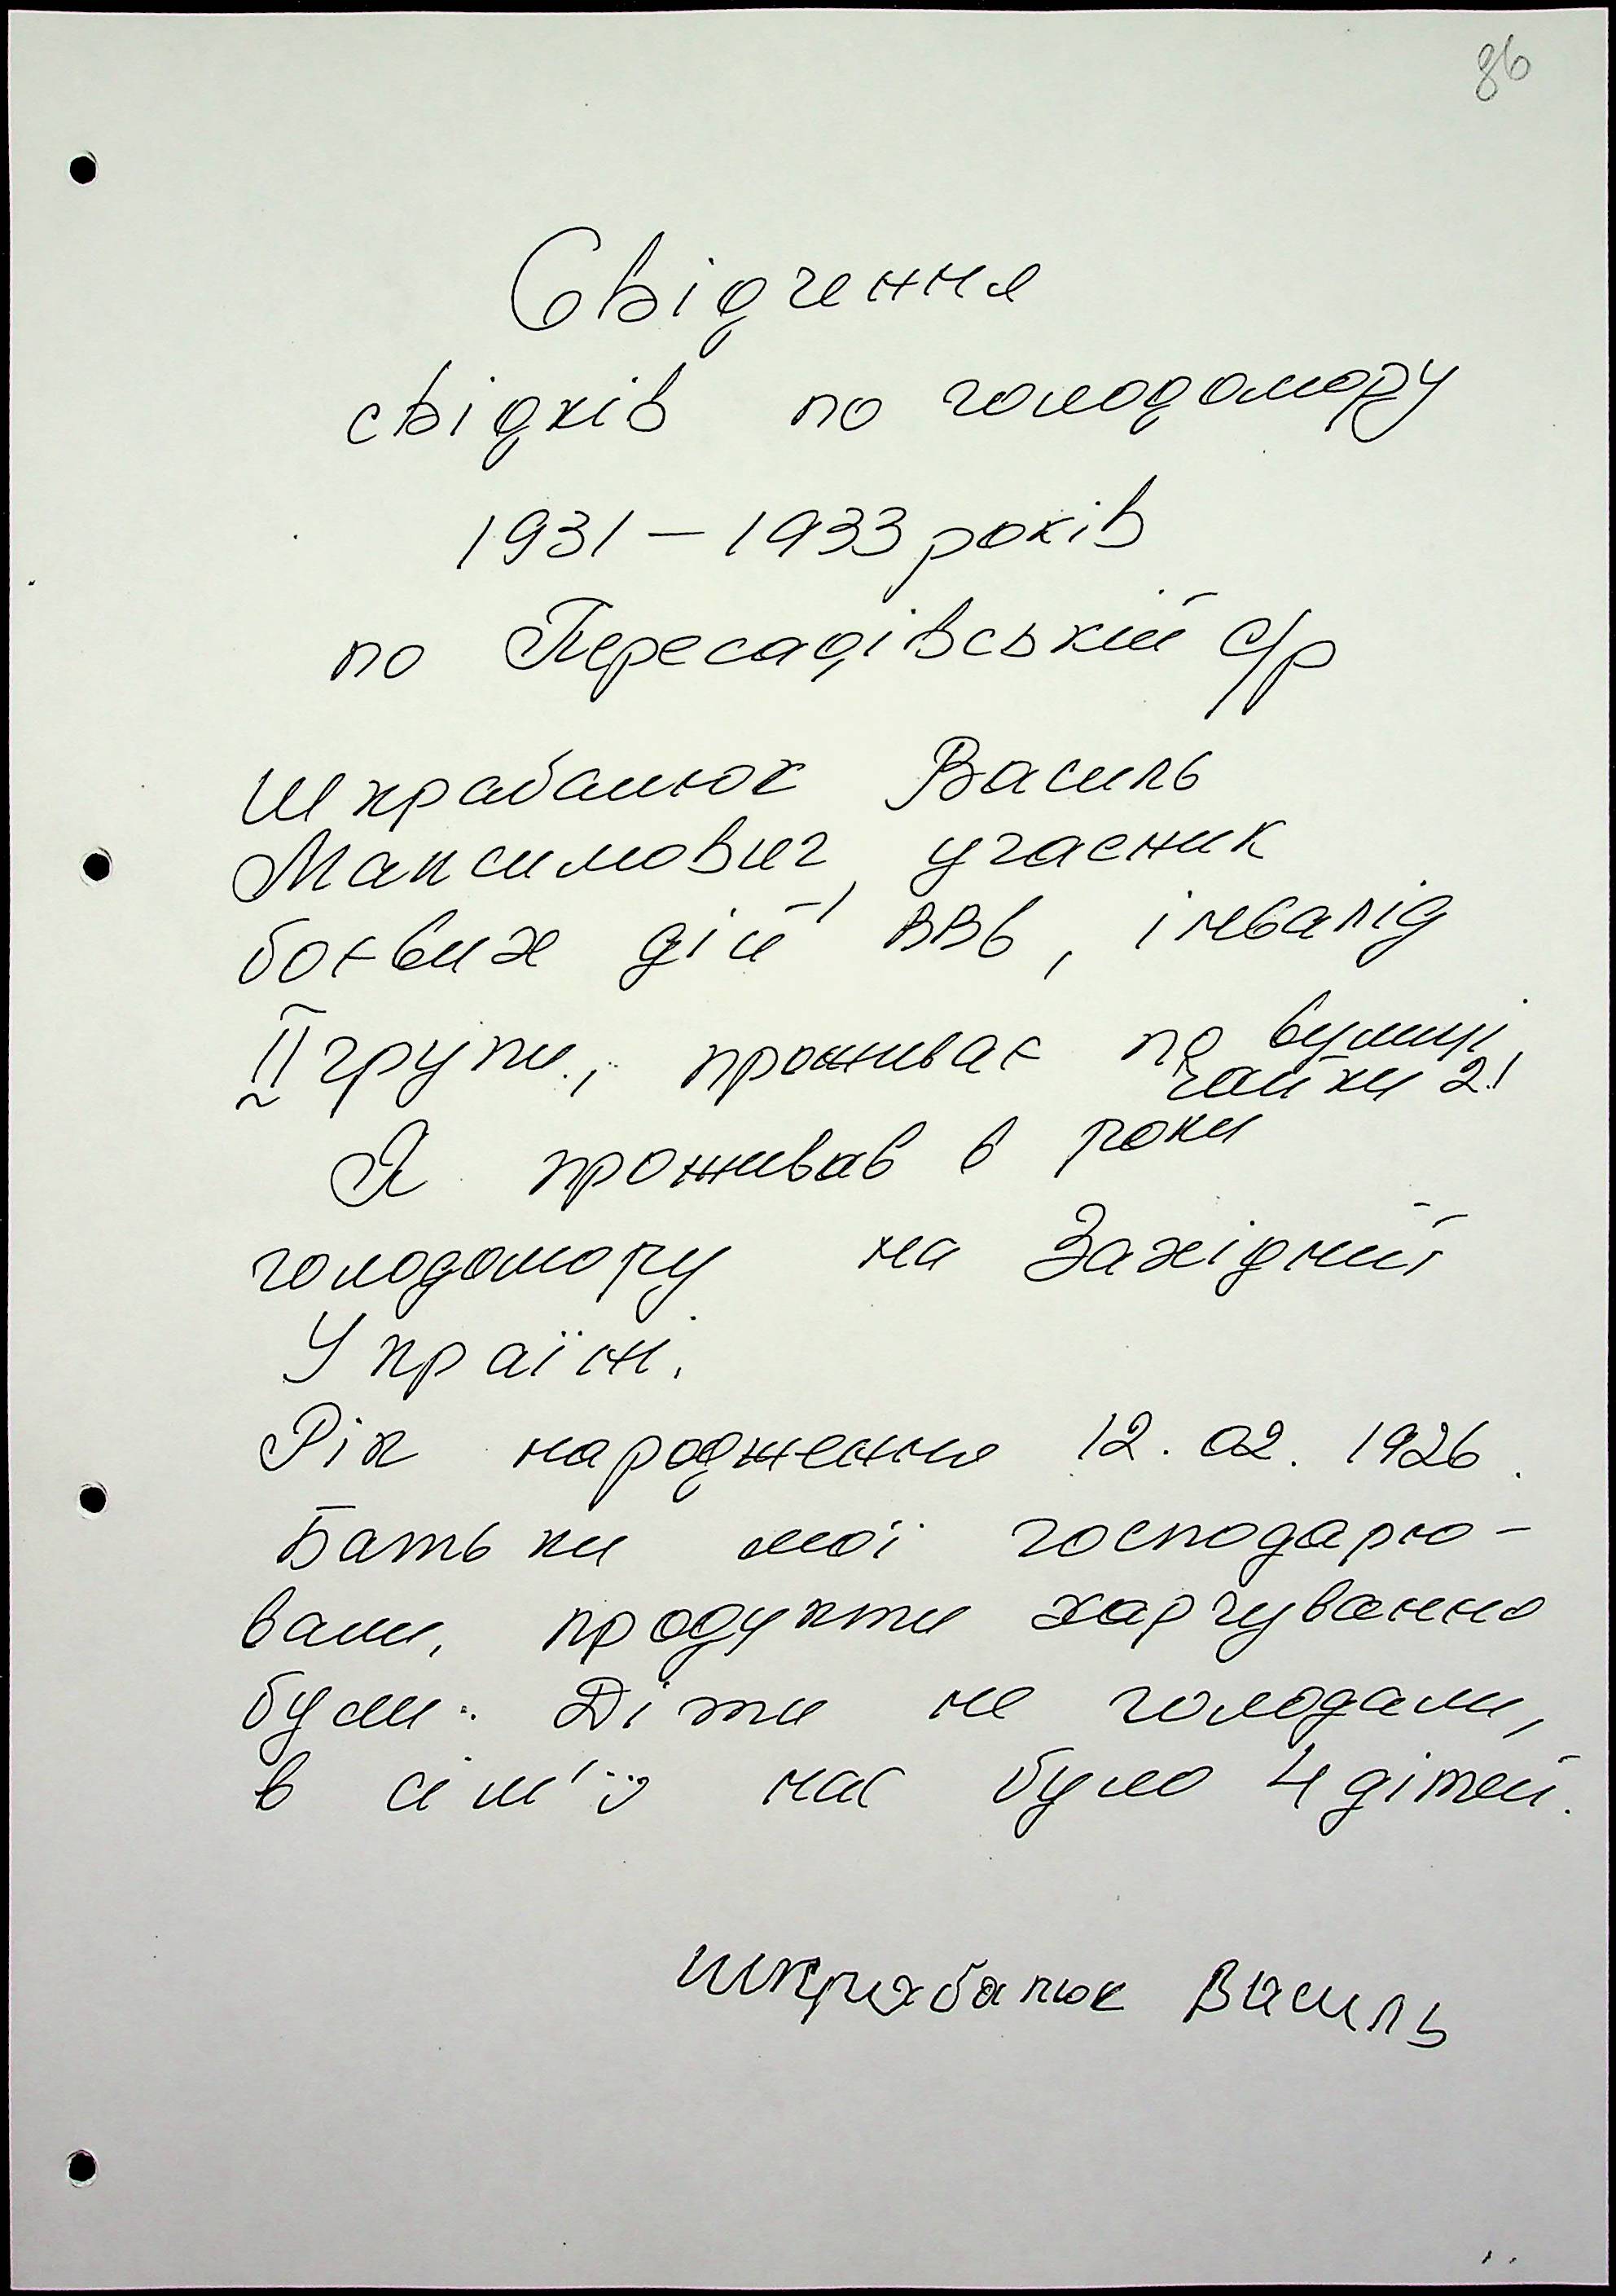 86
Свідчення
свідків по голодомору
1931 – 1933 років
по Пересадівській с/р
Шкрабалюк Василь
Максимович, учасник
боєвих дій ВВв, інвалід
ІІ групи, проживає по вулиці
Чайки 21
Я проживав в роки
голодомору на Західній
Україні.
Рік народження 12.02.1926.
Батьки мої господарю-
вали, продукти харчування
були. Діти не голодали,
в сім'ї нас було 4 дітей.
Василь